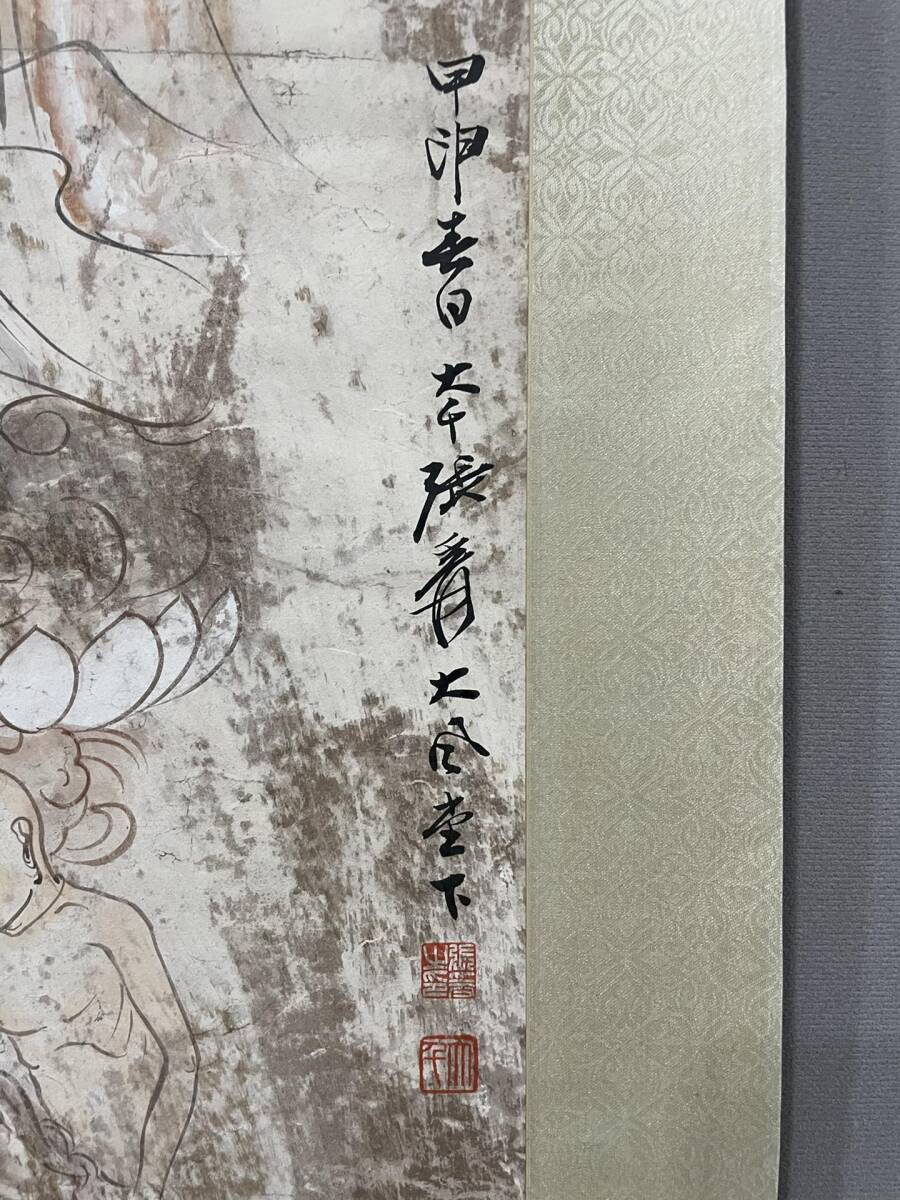 甲申春日大千張爰大風堂下
張爰之印
大千